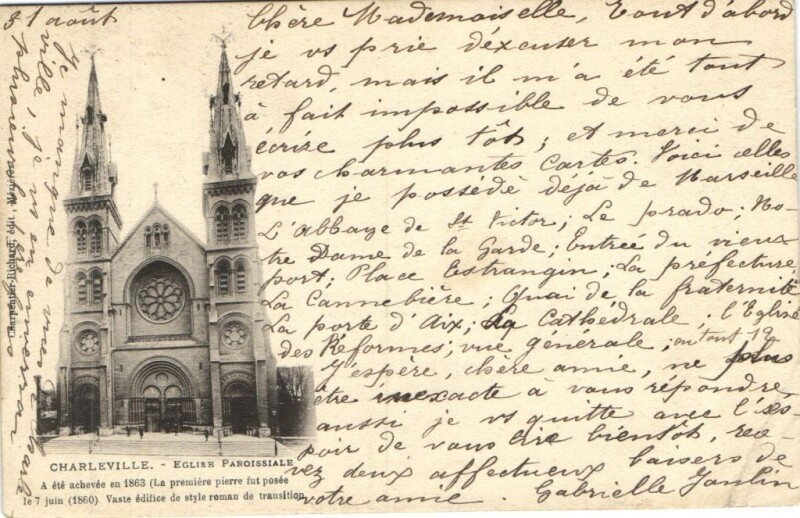 31 août
Chère Mademoiselle, Tout d'abord
je vs prie d'éxcuser mon
retard, mais il m'a été tout
à fait impossible de vous
écrire plus tôt; et merci de
vos charmantes cartes. Voici celles
que je possédè déjà de Marseille
L'abbaye de St Victor; Le prado; No-
tre Dame de la Garde; Entrée du vieux
port; Place Estrangin; La préfecture
La Cannebière; Quai de la fraternité
La porte d'Aix; La Cathédrale; l'Eglise
des Réformes; vue générale; en tout 12
J'espère, chère amie, ne plus
être inexacte à vous répondre,
aussi je vs quitte avec l'es-
poir de vous lire bientôt, rece-
vez deux affectueux baisers de
votre amie. Gabrielle
Je manque de vues de cette
ville, je vs en enverrai
Charpentier-Richard, édit.
CHARLEVILLE. - EGLISE PAROISSIALE
A été achevée en 1863 (La première pierre fut posée
le 7 juin (1860). Vaste édifice de style roman de transition